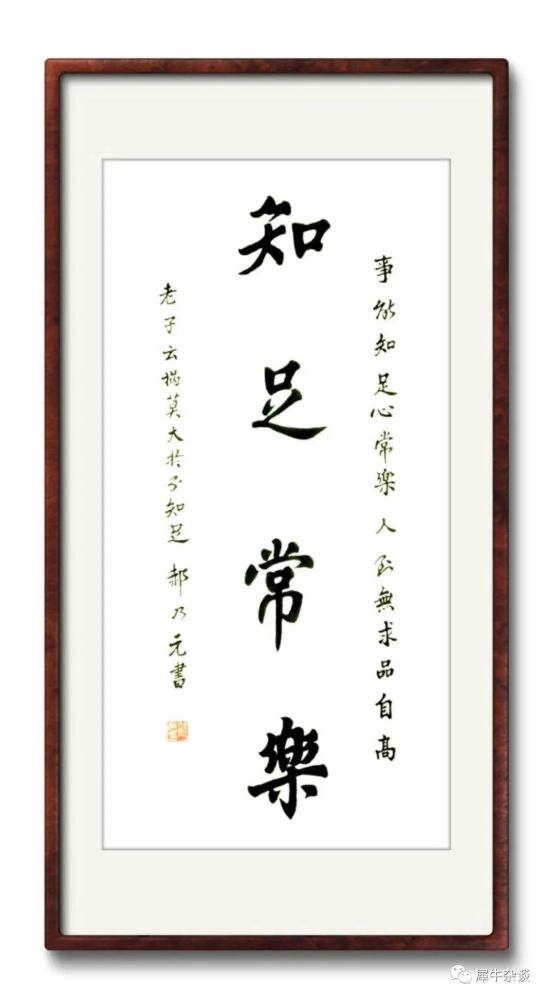 事能知足心常樂 人到無求品自高
知足常樂
老子云禍莫大於不知足 郝乃元書
犀牛杂谈